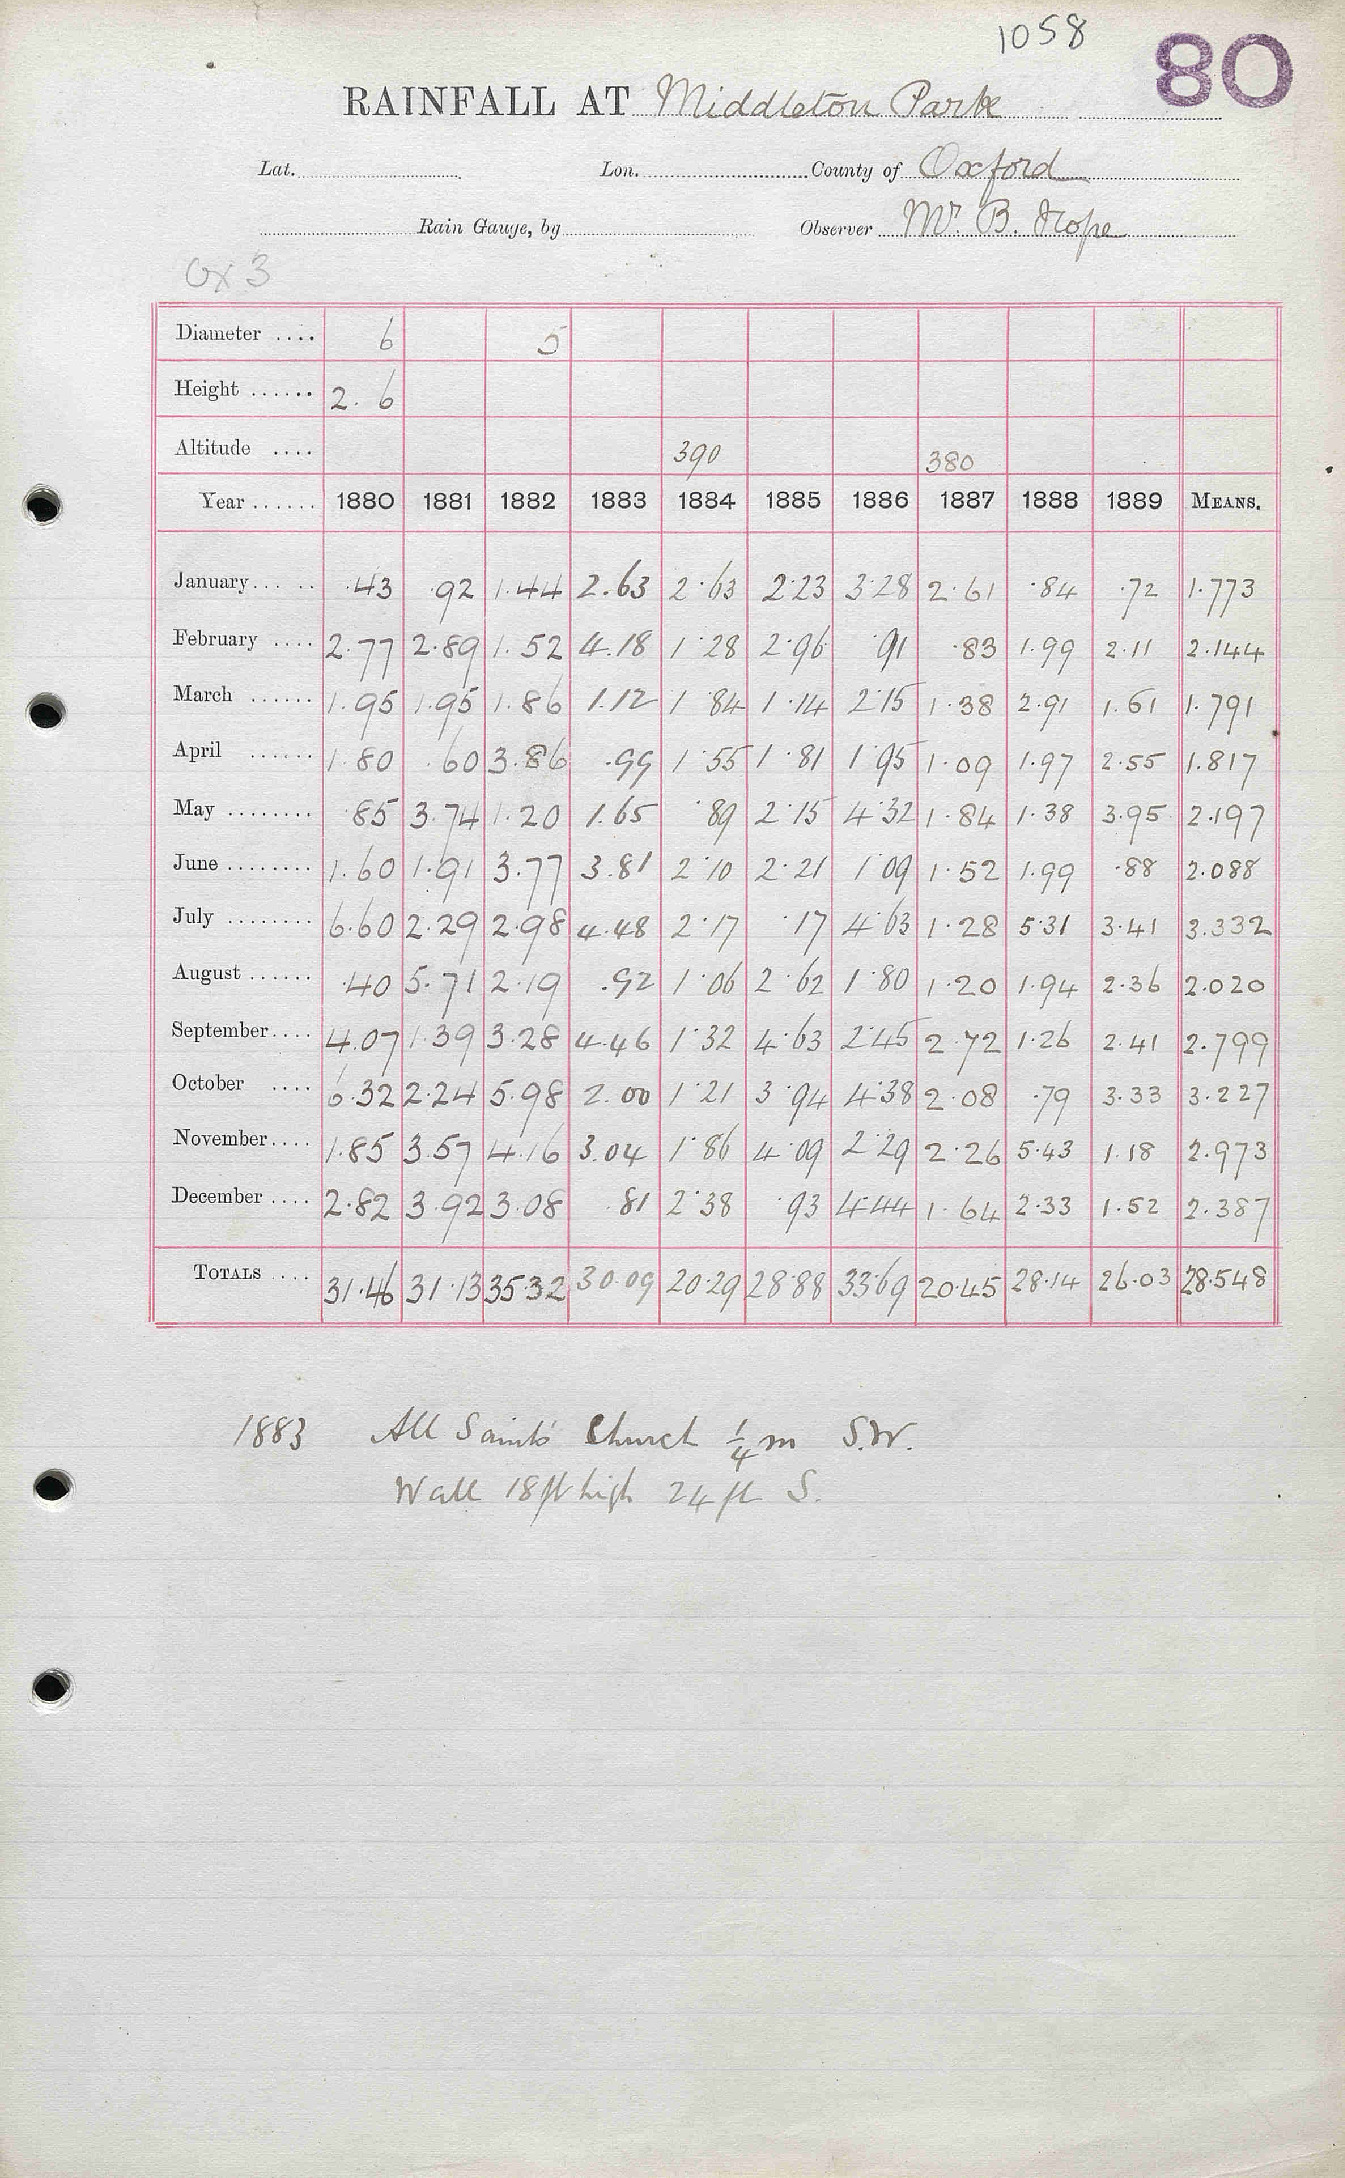 1058 80
RAINFALL AT Middleton Park
Lat. Lon. County of Oxford
Rain Gauge, by Observer Mr. B. Hope
Ox 3
Diameter .... 6 5
Height ...... 2. 6
Altitude .... 390 380
Year ...... 1880 1881 1882 1883 1884 1885 1886 1887 1888 1889 MEANS.
January... .. .43 .92 1.44 2.63 2.63 2.23 3.28 2.61 .84 .72 1.773
February .... 2.77 2.89 1.52 4.18 1.28 2.96 .91 .83 1.99 2.11 2.144
March ...... 1.95 1.95 1.86 1.12 1.84 1.14 2.15 1.38 2.91 1.61 1.791
April ...... 1.80 .60 3.86 .99 1.55 1.81 1.95 1.09 1.97 2.55 1.817
May ........ .85 3.74 1.20 1.65 .89 2.15 4.32 1.84 1.38 3.95 2.197
June ........ 1.60 1.91 3.77 3.81 2.10 2.21 1.09 1.52 1.99 .88 2.088
July ........ 6.60 2.29 2.98 4.48 2.17 .17 4.63 1.28 5.31 3.41 3.332
August ...... .40 5.71 2.19 .92 1.06 2.62 1.80 1.20 1.94 2.36 2.020
September.... 4.07 1.39 3.28 4.46 1.32 4.63 2.45 2.72 1.26 2.41 2.799
October .... 6.32 2.24 5.98 2.00 1.21 3.94 4.38 2.08 .79 3.33 3.227
November.... 1.85 3.57 4.16 3.04 1.86 4.09 2.29 2.26 5.43 1.18 2.973
December .... 2.82 3.92 3.08 .81 2.38 .93 4.44 1.64 2.33 1.52 2.387
TOTALS .... 31.46 31.13 35.32 30.09 20.29 28.88 33.69 20.45 28.14 26.03 28.548
1883 All Saints' Church 1/4 m S.W.
Wall 18 ft high 24 ft S.